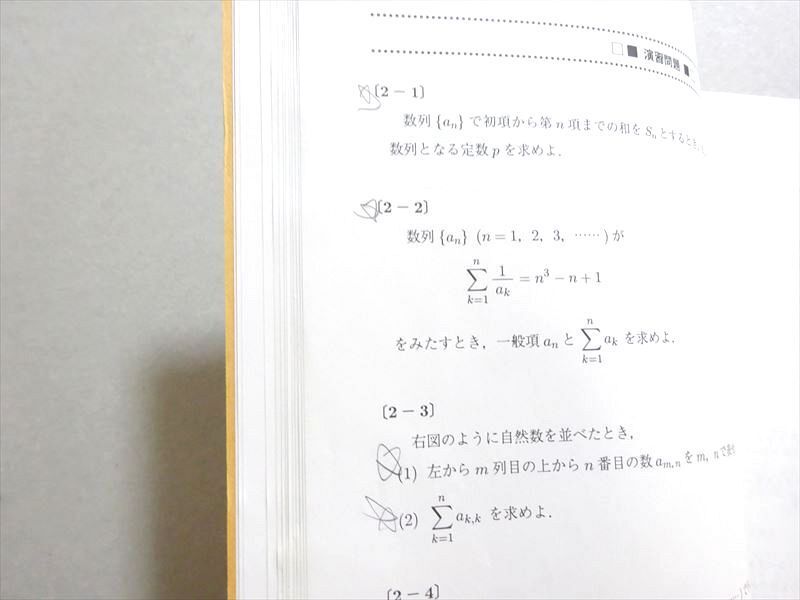 □■ 演習問題
〔2－1〕
数列 {aₙ} で初項から第 n 項までの和を Sₙ とするとき，
数列となる定数 p を求めよ．
〔2－2〕
数列 {aₙ} (n＝1，2，3，……) が
∑_{k=1}^{n} 1/aₖ = n³ − n + 1
をみたすとき，一般項 aₙ と ∑_{k=1}^{n} aₖ を求めよ．
〔2－3〕
右図のように自然数を並べたとき，
(1) 左から m 列目の上から n 番目の数 a_{m,n} を m, n で
(2) ∑_{k=1}^{n} a_{k,k} を求めよ．
〔2－4〕